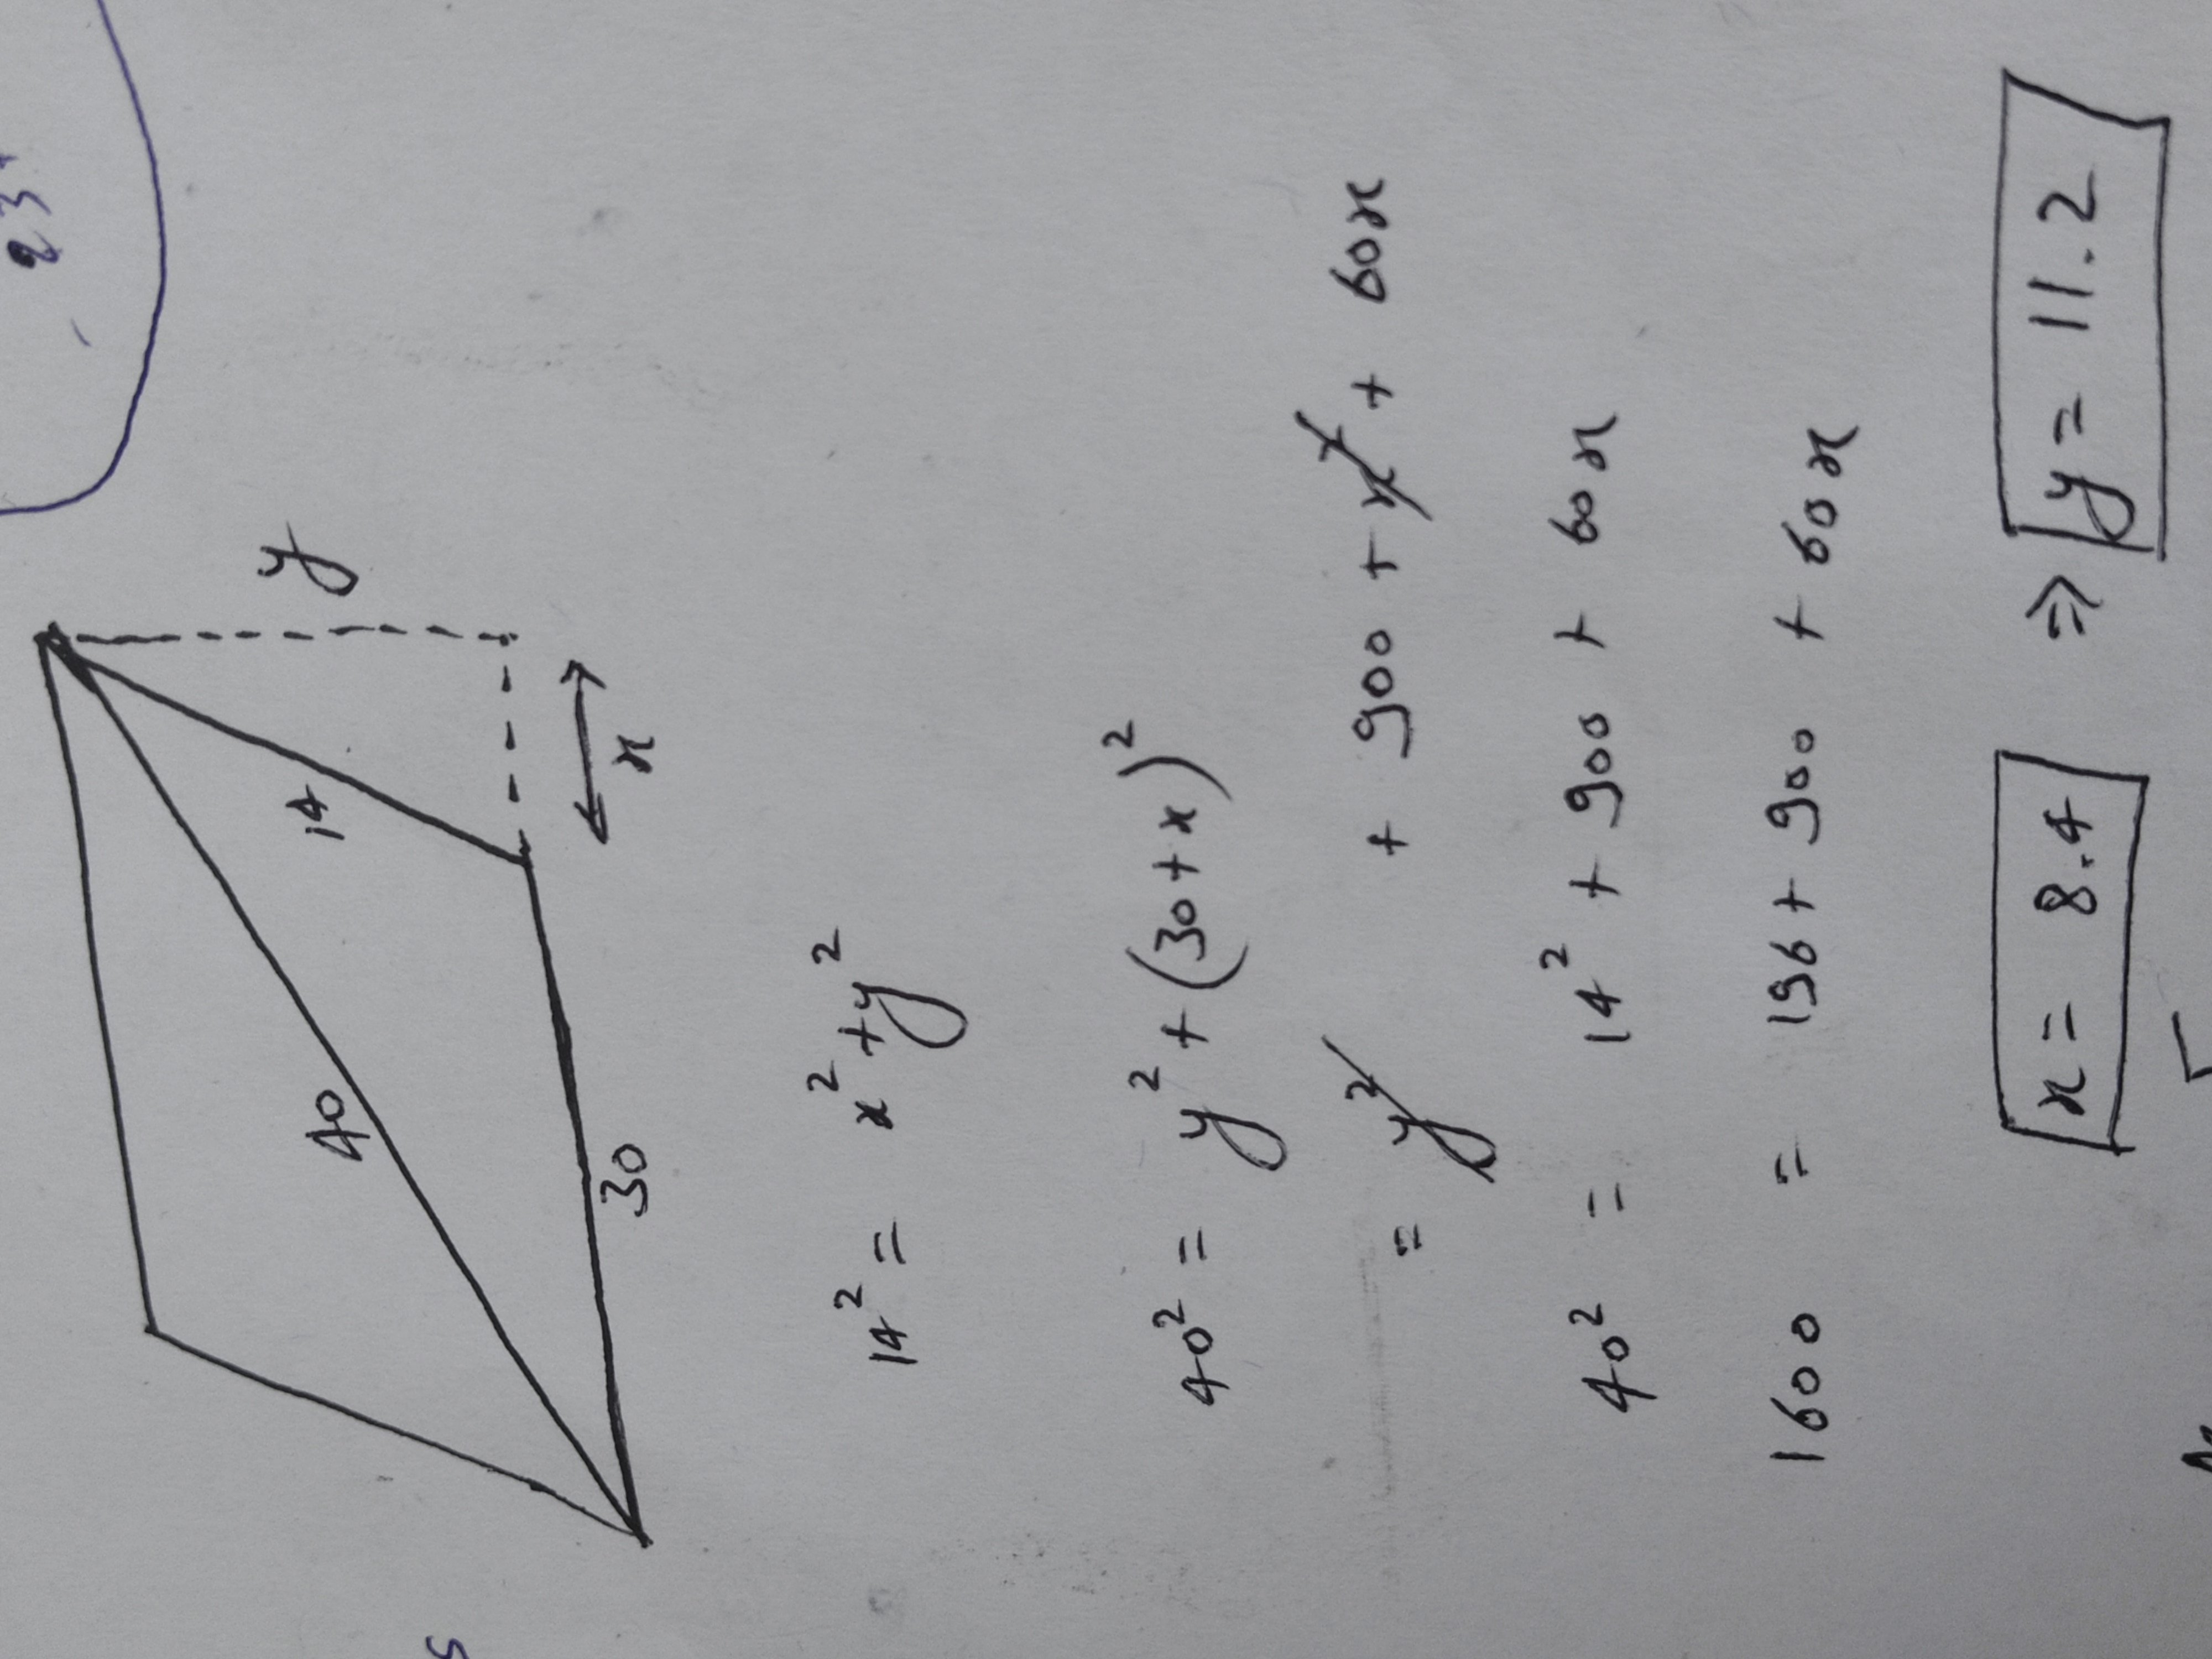 23
y
14
40
x
30
14² = x² + y²
40² = y² + (30 + x)²
= y² + 900 + x² + 60x
40² = 14² + 900 + 60x
1600 = 196 + 900 + 60x
x = 8.4 ⇒ y = 11.2